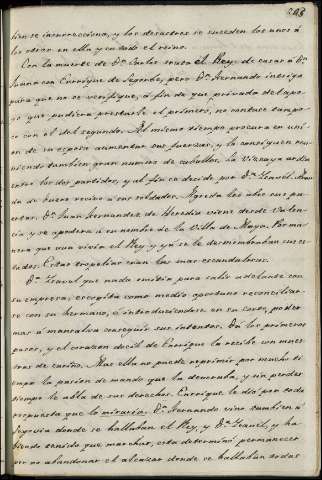 bien se insurreccionó, y los desastres se suceden los unos á
los otros en ella y en todo el reino.
Con la muerte de Dn. Carlos trata el Rey de casar á Dª.
Juana con Enrique de Segorbe, pero Dn. Fernando intriga
para que no se verifique, á fin de que privado del apo-
yo que pudiera prestarle el primero, no contase tampo-
co con el del segundo. Al mismo tiempo procura en uni-
on de su esposa aumentar sus fuerzas, y la consiguen reu-
niendo tambien gran numero de caballos. La Vizcaya ardia
entre los dos partidos, y al fin se decide por Dª. Isavel.
de buero vuelve á ser soldados. Agreda les abre sus pu-
ertas. Dn. Juan Fernandez de Heredia viene desde Valen-
cia y se apodera á su nombre de la Villa de Moya. Por ma-
nera que aun vivia el Rey y yá se le desmembraban sus es-
tados. Estas tropelias eran las mas escandalosas.
Dª. Isavel que nada omitia para salir adelante con
su empresa, escogita como medio oportuno reconciliar-
se con su hermano, é introduciendose en su corte, poder
mas á mansalva conseguir sus intentos. Dá los primeros
pasos, y el corazon docil de Enrique la recibe con mues-
tras de cariño. Mas ella no puede reprimir por mucho ti-
empo la pasion de mando que la devoraba, y sin perder
tiempo le abla de sus derechos. Enrique le dá por toda
respuesta que lo miraria. Dn. Fernando vino tambien á
Segovia donde se hallaban el Rey, y Dª. Isavel, y ha-
biendo tenido que marchar, esta determinó permanecer
por no abandonar el alcazar donde se hallaban todas